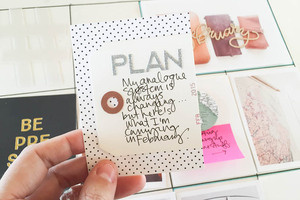 PLAN
My analogue
system is
always
changing...
but here's
what I'm
carrying
in February
february
BE
PRE
S